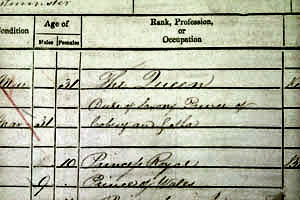 Condition
Age of
Males Females
Rank, Profession,
or
Occupation
Mar 31 The Queen
Duke of Saxony Prince of
Mar 31
10 Princess Royal
9 Prince of Wales